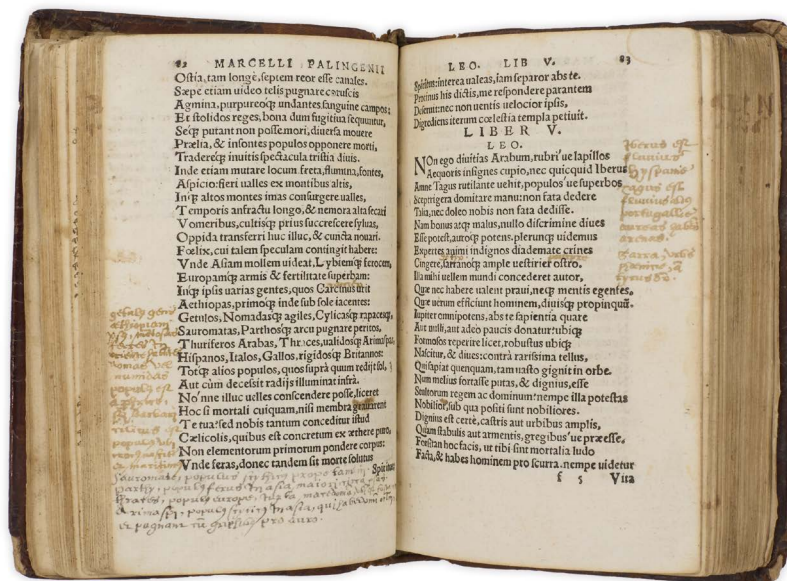 82 MARCELLI PALINGENII
Ostia, tam longè. septem reor esse canales.
Sæpe etiam uideo telis pugnare coruscis
Agmina, purpureoq; undantes sanguine campos:
Et stolidos reges, bona dum fugitiua sequuntur,
Seq; putant non posse mori, diuersa mouere
Prælia, & insontes populos opponere morti,
Tradereq; inuitis spectacula tristia diuis.
Inde etiam mutare locum freta, flumina, fontes,
Aspicio: fieri ualles ex montibus altis,
Inq; altos montes imas consurgere ualles,
Temporis anfractu longo, & nemora alta secari
Vomeribus, cultisq; prius succrescere syluas,
Oppida transferri huc illuc, & cuncta nouari.
Fœlix, cui talem speculam contingit habere:
Vnde Asiam mollem uideat, Lybiemq; ferocem,
Europamq; armis & fertilitate superbam:
Inq; ipsis uarias gentes, quos Carcinus urit
Aethiopas, primoq; inde sub sole iacentes:
Getulos, Nomadasq; agiles, Cylicasq; rapaces,
Sauromatas, Parthosq; arcu pugnare peritos,
Thuriferos Arabas, Thraces, ualidosq;
Hispanos, Italos, Gallos, rigidosq; Britannos:
Totq; alios populos, quos suprà quum redijt sol,
Aut cùm decessit radijs illuminat infrà.
No'nne illuc uelles conscendere posse, liceret
Hoc si mortali cuiquam, nisi membra grauarent
Te tua? sed nobis tantum conceditur istud
Cælicolis, quibus est concretum ex æthere puro,
Non elementorum primorum pondere corpus:
Vnde feras, donec tandem sit morte solutus
Spiritus
LEO. LIB V. 83
Spiritus: interea ualeas, iam separor abs te.
Protinus his dictis, me respondere parantem
Deseruit: nec non uentis uelocior ipsis,
Digrediens iterum cœlestia templa petiuit.
LIBER V.
LEO.
NOn ego diuitias Arabum, rubri'ue lapillos
Aequoris insignes cupio, nec quicquid Iberus
Amne Tagus rutilante uehit, populos'ue superbos
Sceptrigera domitare manu: non fata dedere
Talia, nec doleo nobis non fata dedisse.
Nam bonus atq; malus, nullo discrimine diues
Esse potest, auroq; potens. plerunq; uidemus
Expertes animi indignos diademate crines
Cingere, sarranoq; ample uestirier ostro.
Illa mihi uellem mundi concederet autor,
Quæ nec habere ualent praui, neq; mentis egentes.
Quæ uerum efficiunt hominem, diuisq; propinquū.
Iupiter omnipotens, abs te sapientia quare
Aut nulli, aut adeo paucis donatur? ubiq;
Formosos reperire licet, robustus ubiq;
Nascitur, & diues: contrà rarissima tellus,
Qui sapiat quenquam, tam uasto gignit in orbe.
Num melius fortasse putas, & dignius, esse
Stultorum regem ac dominum? nempe illa potestas
Nobilior, sub qua positi sunt nobiliores.
Dignius est certè, castris aut urbibus amplis,
Quàm stabulis aut armentis, gregibus'ue præesse.
Forsitan hoc facis, ut tibi sint mortalia ludo
Facta, & habes hominem pro scurra. nempe uidetur
f 5 Vita
Iberus est
fluuius
hyspanie
tagus est
fluuius
portugallie
aureas habēs
arenas.